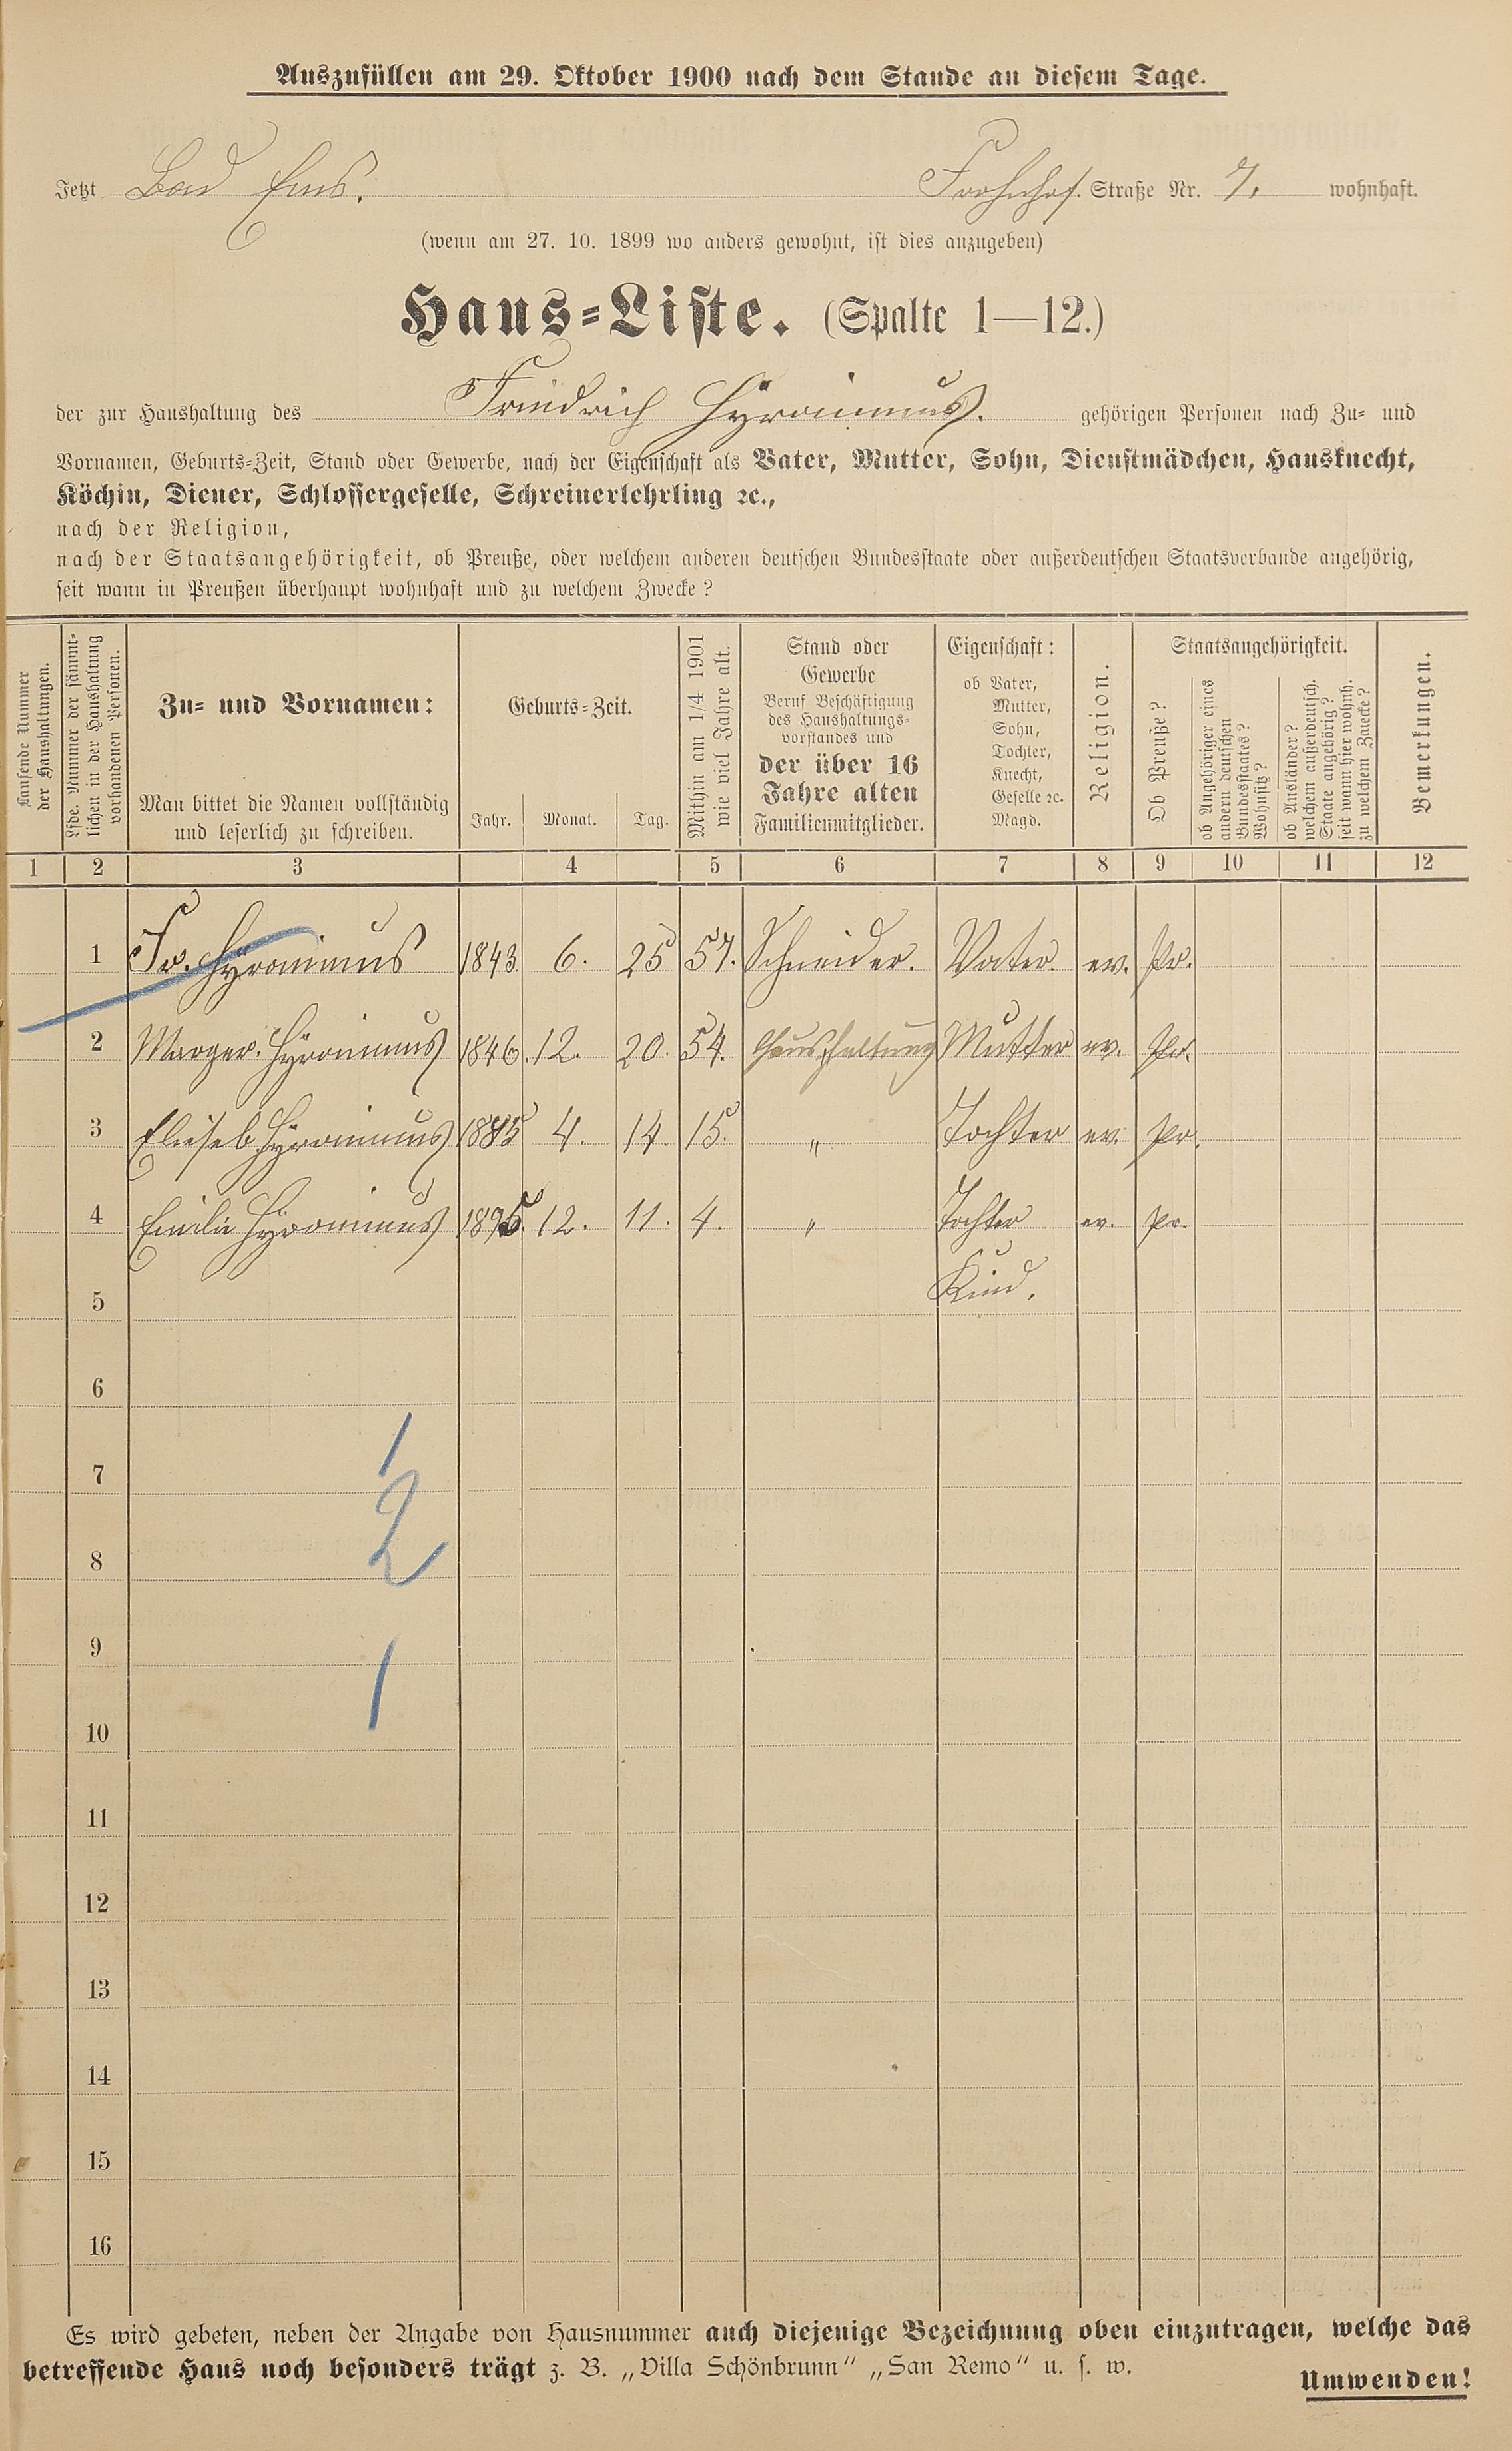 Auszufüllen am 29. Oktober 1900 nach dem Stande an diesem Tage.
Jetzt Bad Ems. Frohnhof. Straße Nr. 7. wohnhaft.
(wenn am 27. 10. 1899 wo anders gewohnt, ist dies anzugeben)
Haus=Liste. (Spalte 1—12.)
der zur Haushaltung des Friedrich Hyronimus. gehörigen Personen nach Zu= und
Vornamen, Geburts=Zeit, Stand oder Gewerbe, nach der Eigenschaft als Vater, Mutter, Sohn, Dienstmädchen, Hausknecht,
Köchin, Diener, Schlossergeselle, Schreinerlehrling ꝛc.,
nach der Religion,
nach der Staatsangehörigkeit, ob Preuße, oder welchem anderen deutschen Bundesstaate oder außerdeutschen Staatsverbande angehörig,
seit wann in Preußen überhaupt wohnhaft und zu welchem Zwecke?
Laufende Nummer
der Haushaltungen.
Lfde. Nummer der sämmt-
lichen in der Haushaltung
vorhandenen Personen.
Zu= und Vornamen:
Man bittet die Namen vollständig
und leserlich zu schreiben.
Geburts=Zeit.
Jahr. Monat. Tag.
Mithin am 1/4 1901
wie viel Jahre alt.
Stand oder
Gewerbe
Beruf Beschäftigung
des Haushaltungs=
vorstandes und
der über 16
Jahre alten
Familienmitglieder.
Eigenschaft:
ob Vater,
Mutter,
Sohn,
Tochter,
Knecht,
Geselle ꝛc.
Magd.
Religion.
Staatsangehörigkeit.
Ob Preuße?
ob Angehöriger eines
andern deutschen
Bundesstaates?
Wohnsitz?
ob Ausländer?
welchem außerdeutsch.
Staate angehörig?
seit wann hier wohnh.
zu welchem Zwecke?
Bemerkungen.
1 2 3 4 5 6 7 8 9 10 11 12
1 Fr. Hyronimus 1843 6. 25 57. Schneider. Vater. ev. Pr.
2 Marger. Hyronimus 1846. 12. 20. 54. Haushaltung Mutter ev. Pr.
3 Elieseb. Hyronimus 1885 4. 14. 15. " Tochter ev. Pr.
4 Emilie Hyronimus 1895. 12. 11. 4. " Tochter ev. Pr.
5 Kind.
6
7 1
8 2
9
10 1
11
12
13
14
15
16
Es wird gebeten, neben der Angabe von Hausnummer auch diejenige Bezeichnung oben einzutragen, welche das
betreffende Haus noch besonders trägt z. B. „Villa Schönbrunn“ „San Remo“ u. s. w.
Umwenden!